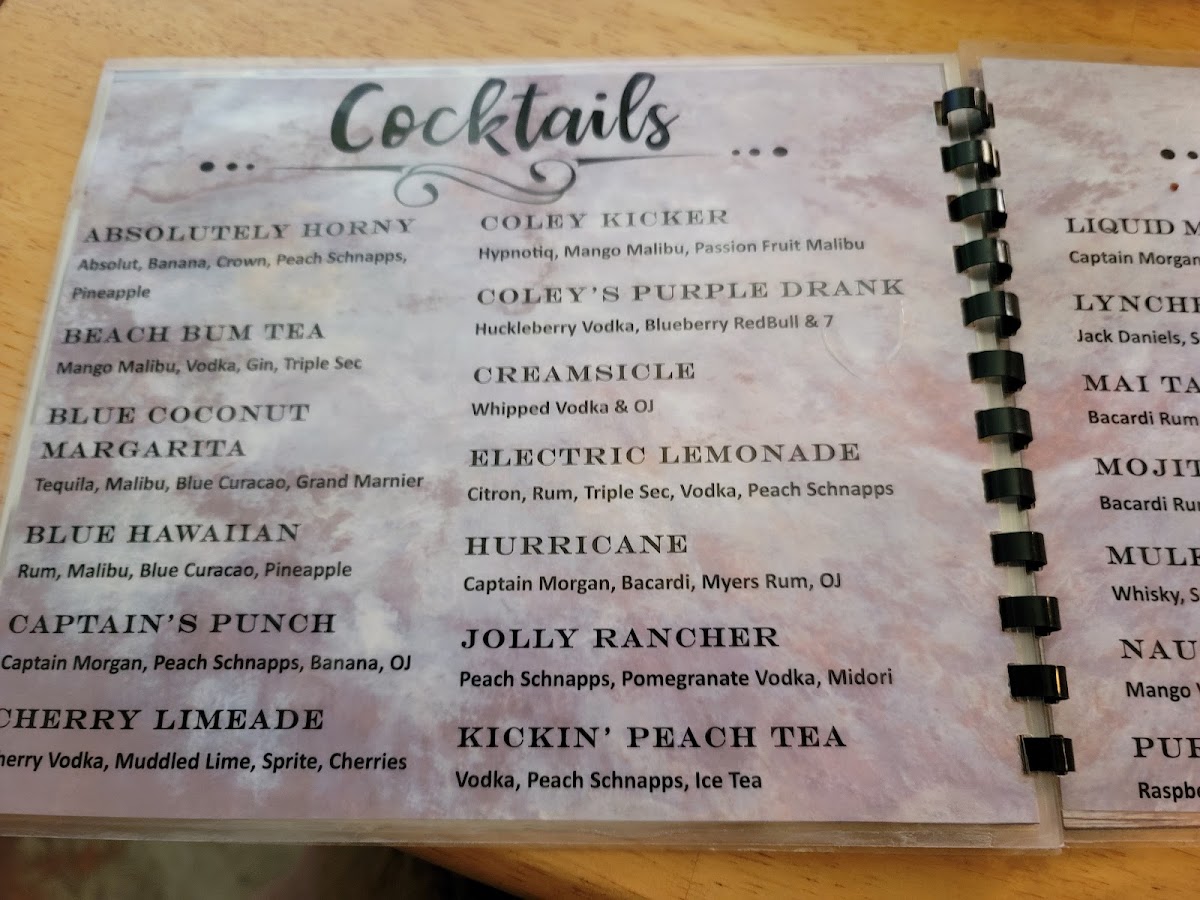 Cocktails
ABSOLUTELY HORNY
Absolut, Banana, Crown, Peach Schnapps,
Pineapple
BEACH BUM TEA
Mango Malibu, Vodka, Gin, Triple Sec
BLUE COCONUT
MARGARITA
Tequila, Malibu, Blue Curacao, Grand Marnier
BLUE HAWAIIAN
Rum, Malibu, Blue Curacao, Pineapple
CAPTAIN'S PUNCH
Captain Morgan, Peach Schnapps, Banana, OJ
CHERRY LIMEADE
Vodka, Muddled Lime, Sprite, Cherries
COLEY KICKER
Hypnotiq, Mango Malibu, Passion Fruit Malibu
COLEY'S PURPLE DRANK
Huckleberry Vodka, Blueberry RedBull & 7
CREAMSICLE
Whipped Vodka & OJ
ELECTRIC LEMONADE
Citron, Rum, Triple Sec, Vodka, Peach Schnapps
HURRICANE
Captain Morgan, Bacardi, Myers Rum, OJ
JOLLY RANCHER
Peach Schnapps, Pomegranate Vodka, Midori
KICKIN' PEACH TEA
Vodka, Peach Schnapps, Ice Tea
LIQUID
Captain Morgan
Jack Daniels,
MAI
Bacardi Rum
Bacardi
Whisky,
Mango